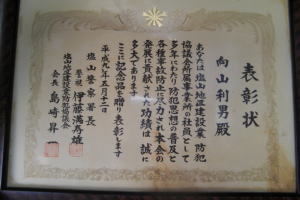 表彰状
向山利男殿
あなたは塩山地区建設業 防犯
協議会所属事業所の社員として
多年にわたり防犯思想の普及と
各種事故防止に尽力され本会の
発展に貢献された功績は 誠に
多大であります
ここに記念品を贈り表彰します
平成九年五月十二日
塩山警察署長
警視 伊藤満寿雄
塩山地区建設業防犯協議会
会長 島崎昇一